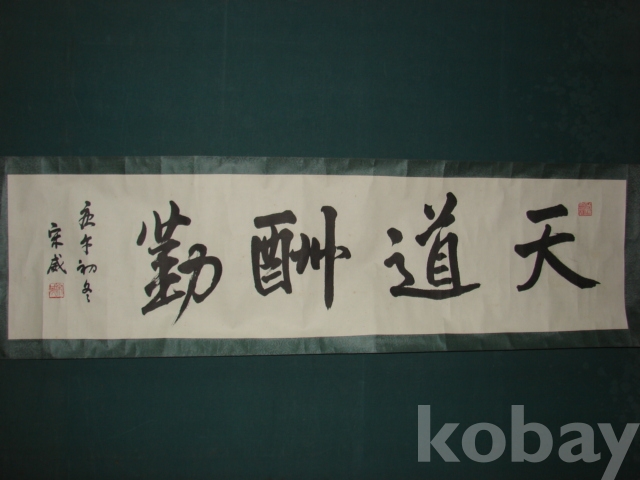 天道酬勤
庚午初冬
宋威
kobay